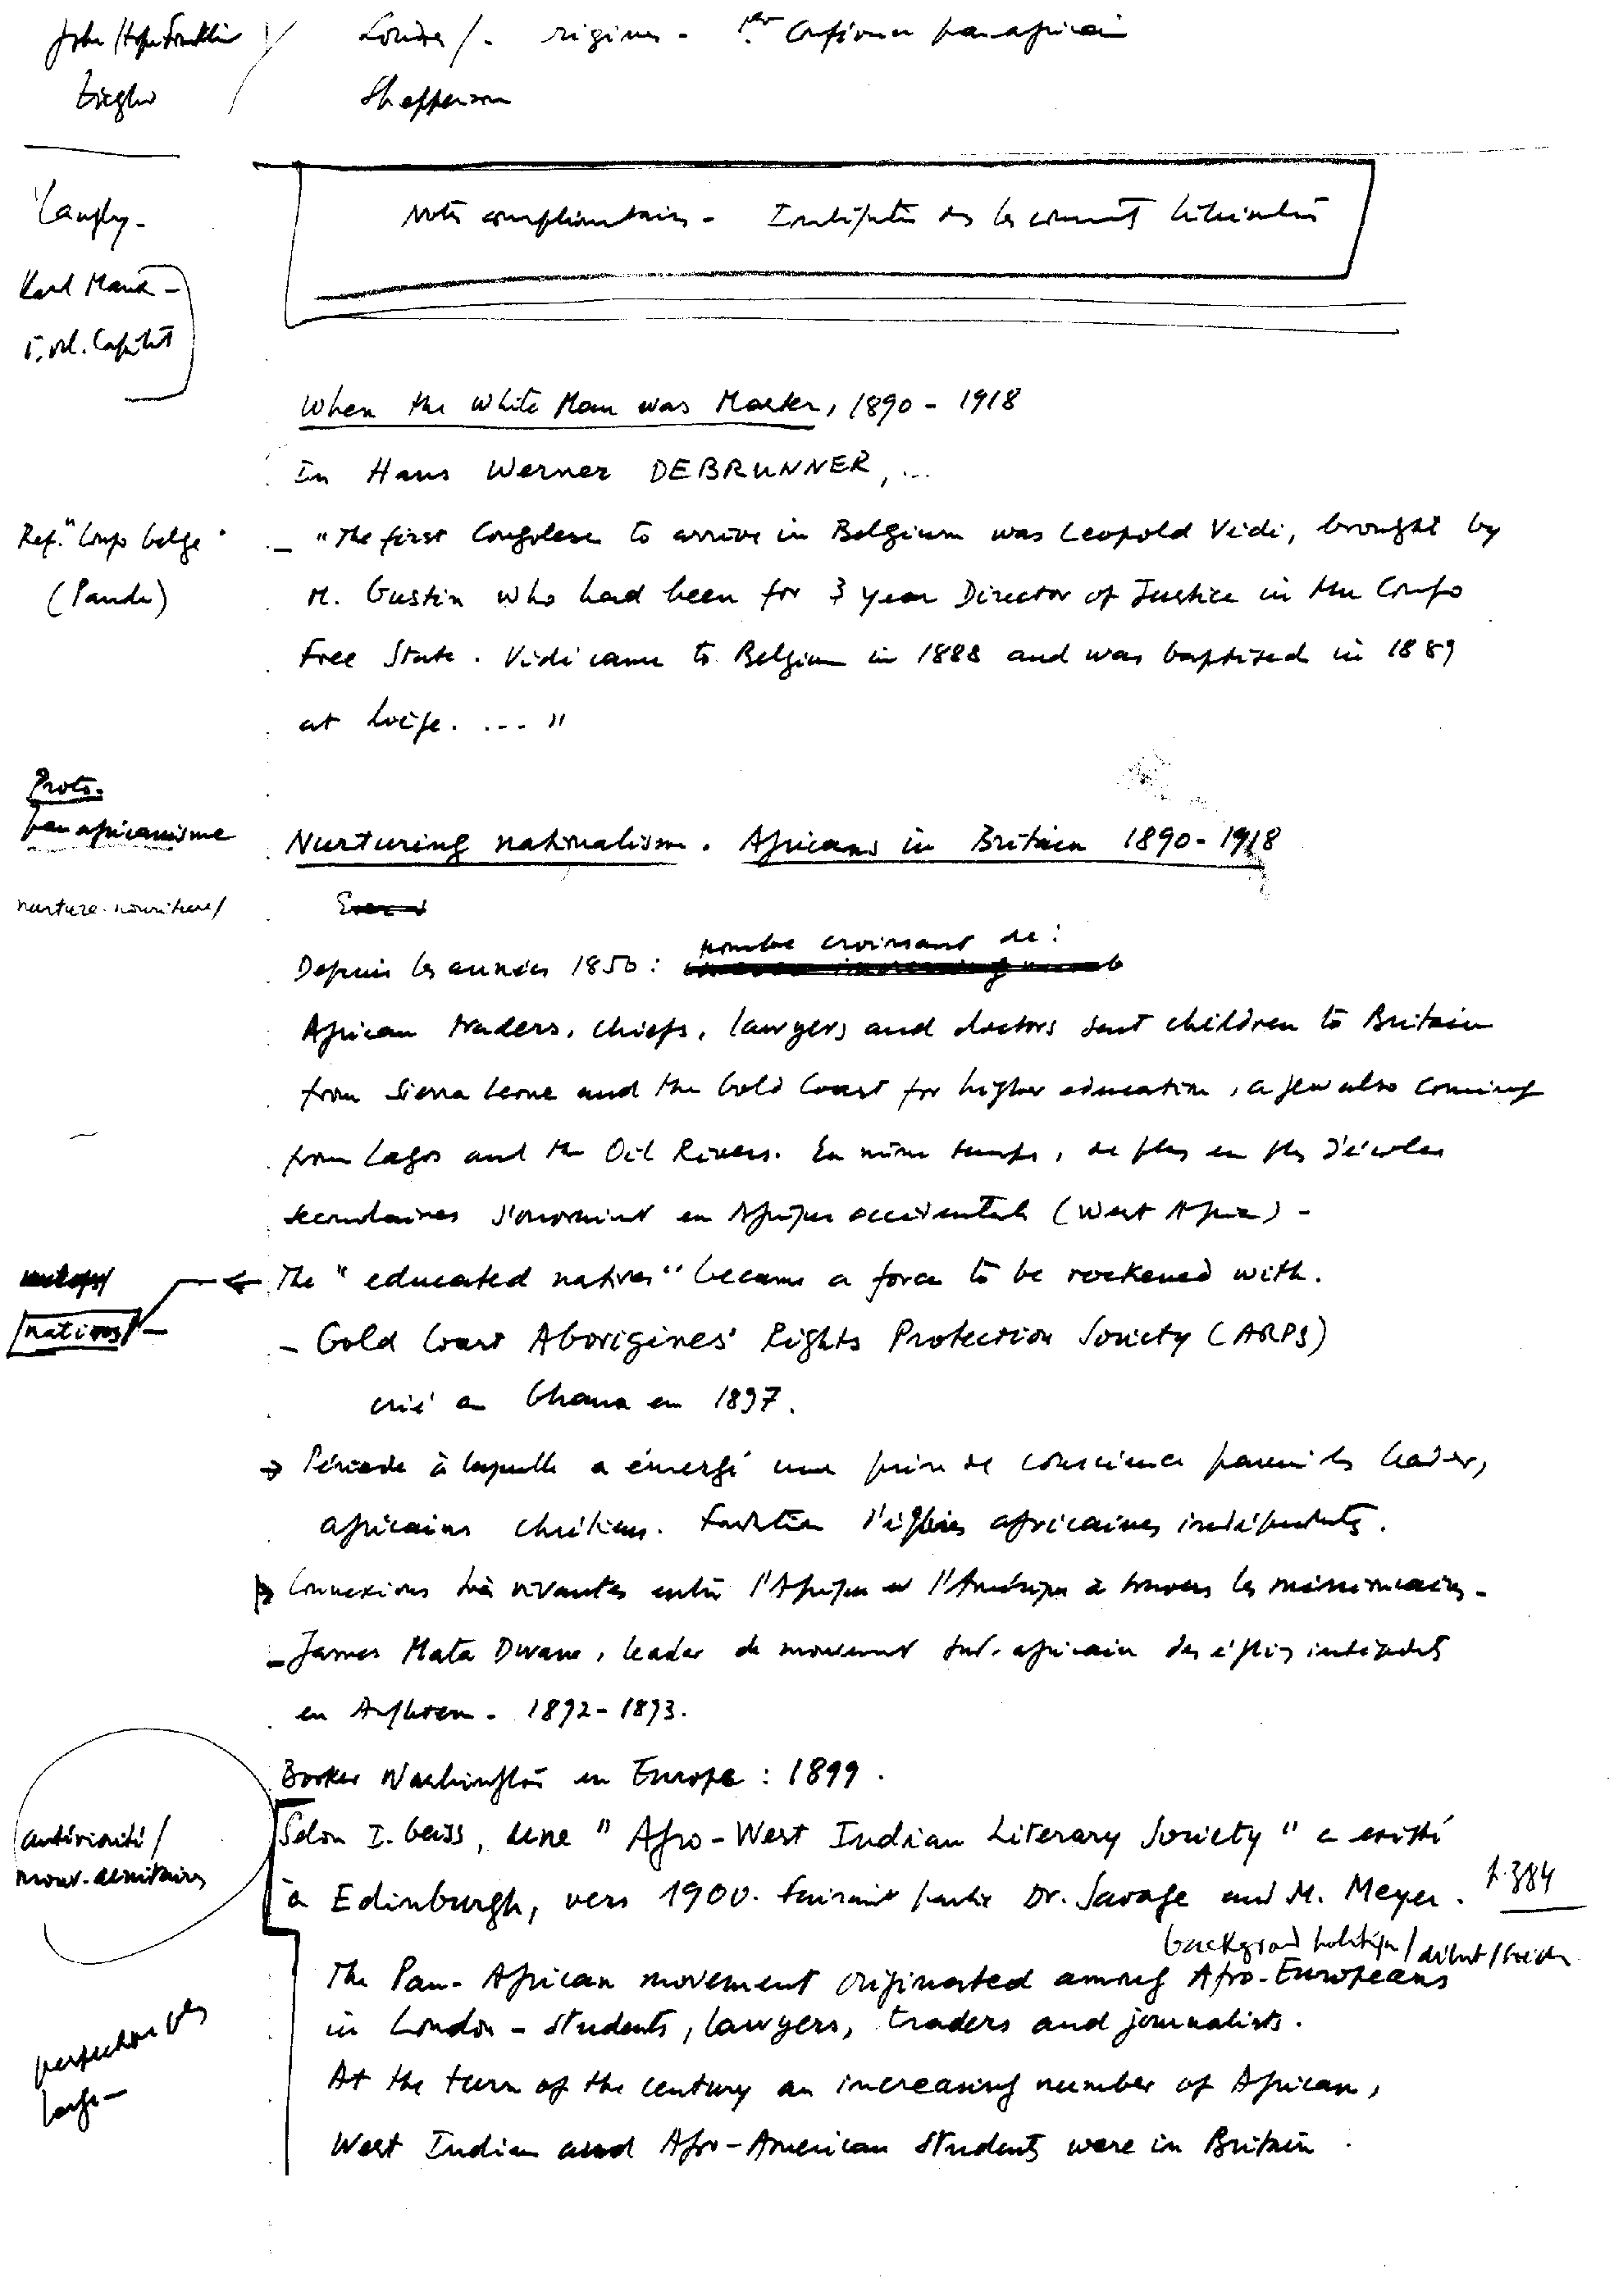 John Hope Franklin / Londres / - origines - 1er Conférence panafricain
Ziegler / Shepperson
Langley -
Notes complémentaires - Intégrés ds les courants
Karl Marx -
When the White Man was Master, 1890 - 1918
In Hans Werner DEBRUNNER, ...
Ref. "Congo belge"
(Panda)
_ "The first Congolese to arrive in Belgium was Leopold Vidi, brought by
M. Gustin who had been for 3 year Director of Justice in the Congo
Free State. Vidi came to Belgium in 1888 and was baptised in 1889
at Liège. ... "
Proto-
panafricanisme
Nurturing nationalism. Africans in Britain 1890-1918
nurture-nourriture/
Depuis les années 1850 : nombre croissant de :
African traders, chiefs, lawyers and doctors sent children to Britain
from Sierra Leone and the Gold Coast for higher education, a few also coming
from Lagos and the Oil Rivers. En même temps, de plus en plus d'écoles
secondaires s'ouvraient en Afrique occidentale (West Africa) -
The "educated natives" became a force to be reckened with.
natives -
- Gold Coast Aborigines' Rights Protection Society (ARPS)
créé au Ghana en 1897.
→ Période à laquelle a émergé une prise de conscience parmi les leaders,
africains chrétiens. Fondation d'églises africaines indépendantes.
→ Connexions très vivantes entre l'Afrique et l'Amérique à travers les missionnaires -
- James Mata Dwane, leader du mouvement sud-africain des églises indépendts
en Angleterre - 1892-1893.
Booker Washington en Europe : 1899.
Selon I. Geiss, une "Afro-West Indian Literary Society" a existé
antériorité/
à Edinburgh, vers 1900. Faisaient partie Dr. Savage and M. Meyer. p. 384
background politique / début / siècle
The Pan-African movement originated among Afro-Europeans
in London - students, lawyers, traders and journalists.
At the turn of the century an increasing number of African,
West Indian and Afro-American students were in Britain.